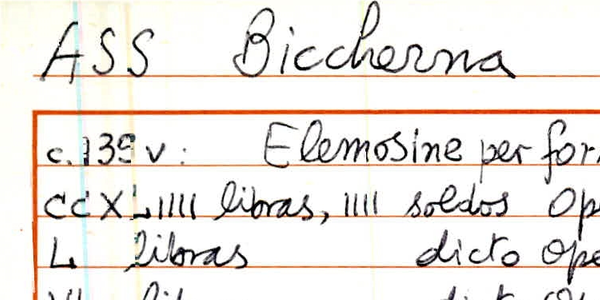 ASS Biccherna
c. 139 v: Elemosine per for
CCXLIIII libras, IIII soldos Op
L libras dicto Ope
lib dicto Ope